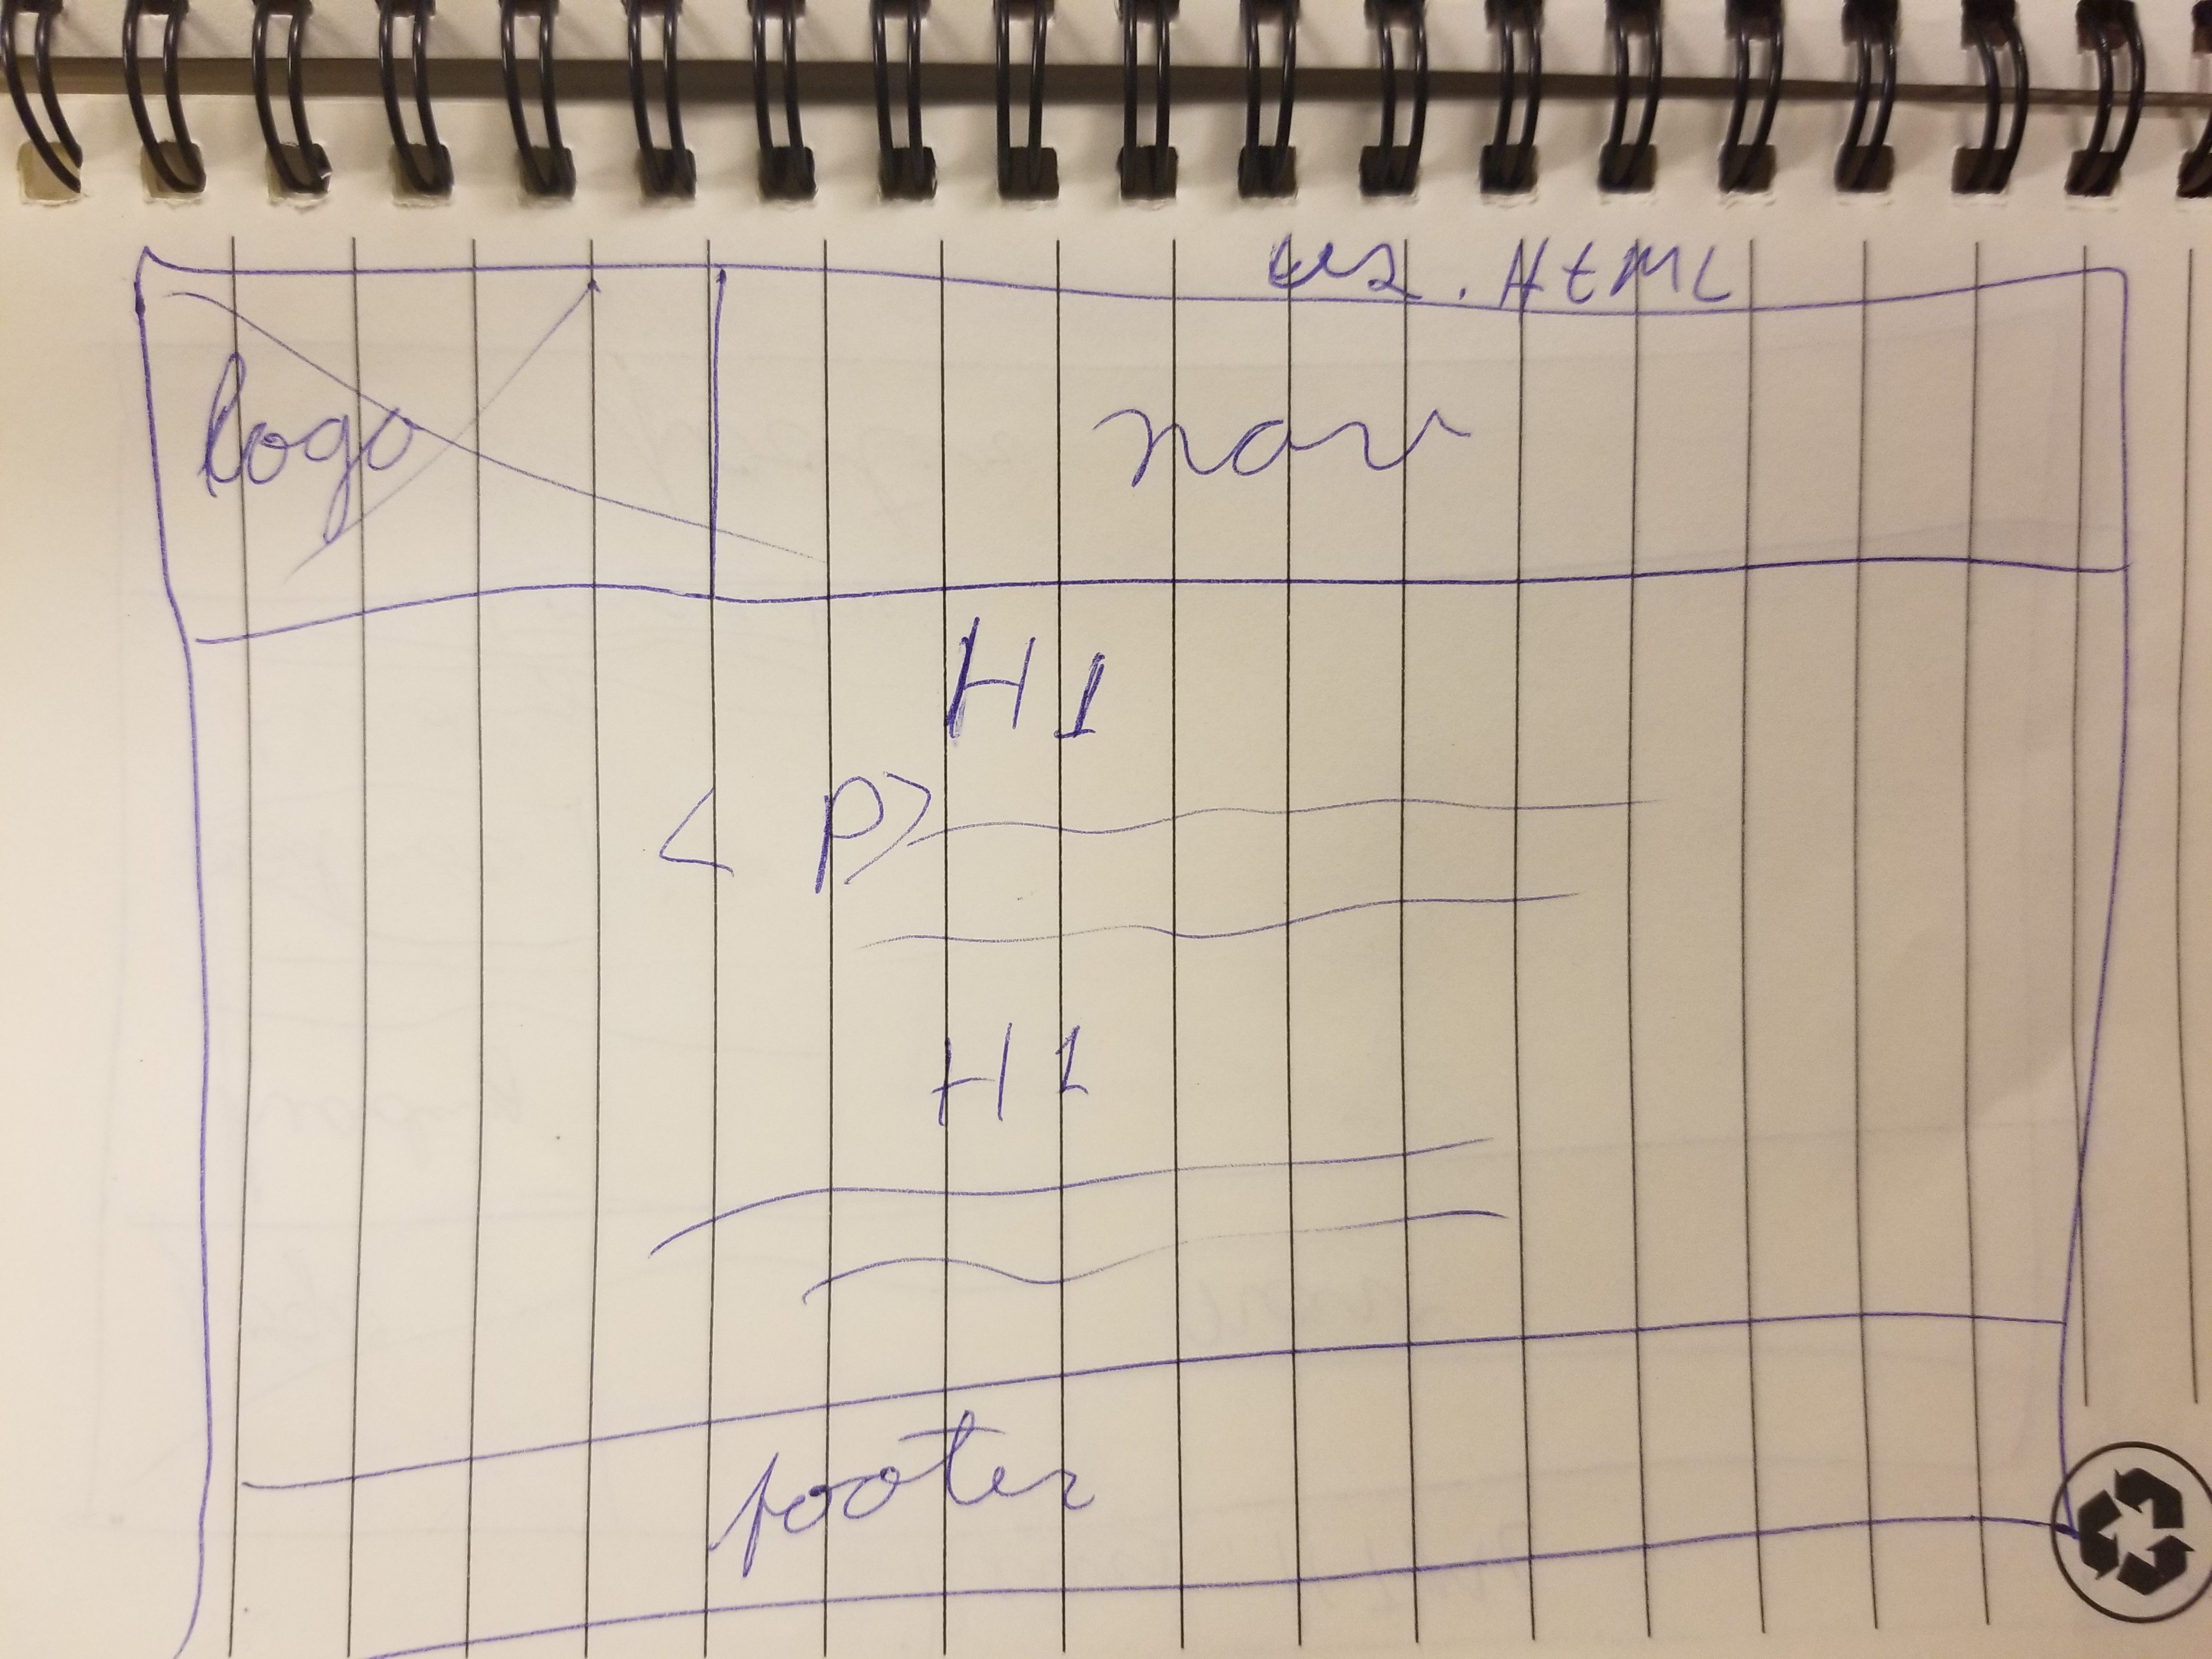 .HTML
logo
nav
H1
<P>
H1
footer